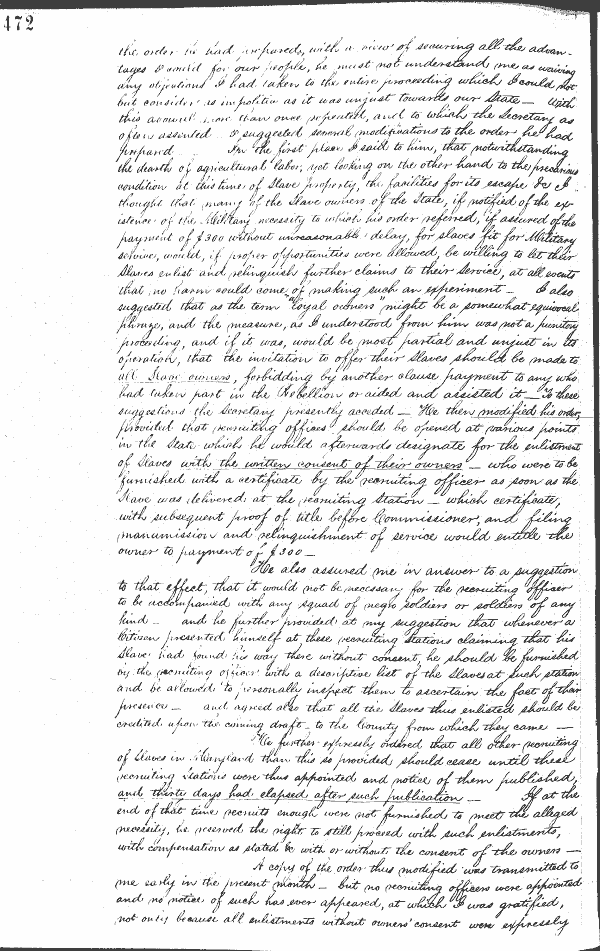 472
the order he had prepared, with a view of securing all the advan-
tages I could for our people, he must not understand me as waiving
any objections I had taken to the entire proceeding which I could not
but consider as impolitic as it was unjust towards our State — With
this avowal more than once repeated, and to which the Secretary as
often assented I suggested several modifications to the order he had
prepared In the first place I said to him, that notwithstanding
the dearth of agricultural labor, yet looking on the other hand to the precarious
condition at this time of Slave property, the facilities for its escape &c I
thought that many of the Slave owners of the State, if notified of the ex-
istence of the Military necessity to which his order referred, if assured of the
payment of $300 without unreasonable delay, for slaves fit for Military
service, would, if proper opportunities were allowed, be willing to let their
Slaves enlist and relinquish further claims to their Service, at all events
that no harm could come of making such an experiment — I also
suggested that as the term "loyal owners" might be a somewhat equivocal
phrase, and the measure, as I understood from him was not a punitory
proceeding, and if it was, would be most partial and unjust in its
operation, that the invitation to offer their Slaves should be made to
all Slave owners, forbidding by another clause payment to any who
had taken part in the Rebellion or aided and assisted it — To these
suggestions the Secretary presently acceded — He then modified his order,
provided that recruiting offices should be opened at various points
in the State which he would afterwards designate for the enlistment
of Slaves with the written consent of their owners — who were to be
furnished with a certificate by the recruiting officer as soon as the
Slave was delivered at the recruiting Station — which certificate,
with subsequent proof of title before Commissioner, and filing
manumission and relinquishment of service would entitle the
owner to payment of $300 —
He also assured me in answer to a suggestion
to that effect, that it would not be necessary for the recruiting officer
to be accompanied with any squad of negro soldiers or soldiers of any
kind — and he further provided at my suggestion that whenever a
Citizen presented himself at these recruiting stations claiming that his
Slave had found his way there without consent, he should be furnished
by the recruiting officer with a descriptive list of the slaves at such station
and be allowed to personally inspect them to ascertain the fact of their
presence — and agreed also that all the Slaves thus enlisted should be
credited upon the coming draft to the County from which they came —
He further expressly ordered that all other recruiting
of Slaves in Maryland than this so provided should cease until these
recruiting stations were thus appointed and notice of them published,
and thirty days had elapsed after such publication — If at the
end of that time recruits enough were not furnished to meet the alleged
necessity, he reserved the right to still proceed with such enlistments,
with compensation as stated & with or without the consent of the owners —
A copy of the order thus modified was transmitted to
me early in the present month — but no recruiting officers were appointed
and no notice of such has ever appeared, at which I was gratified,
not only because all enlistments without owners' consent were expressly